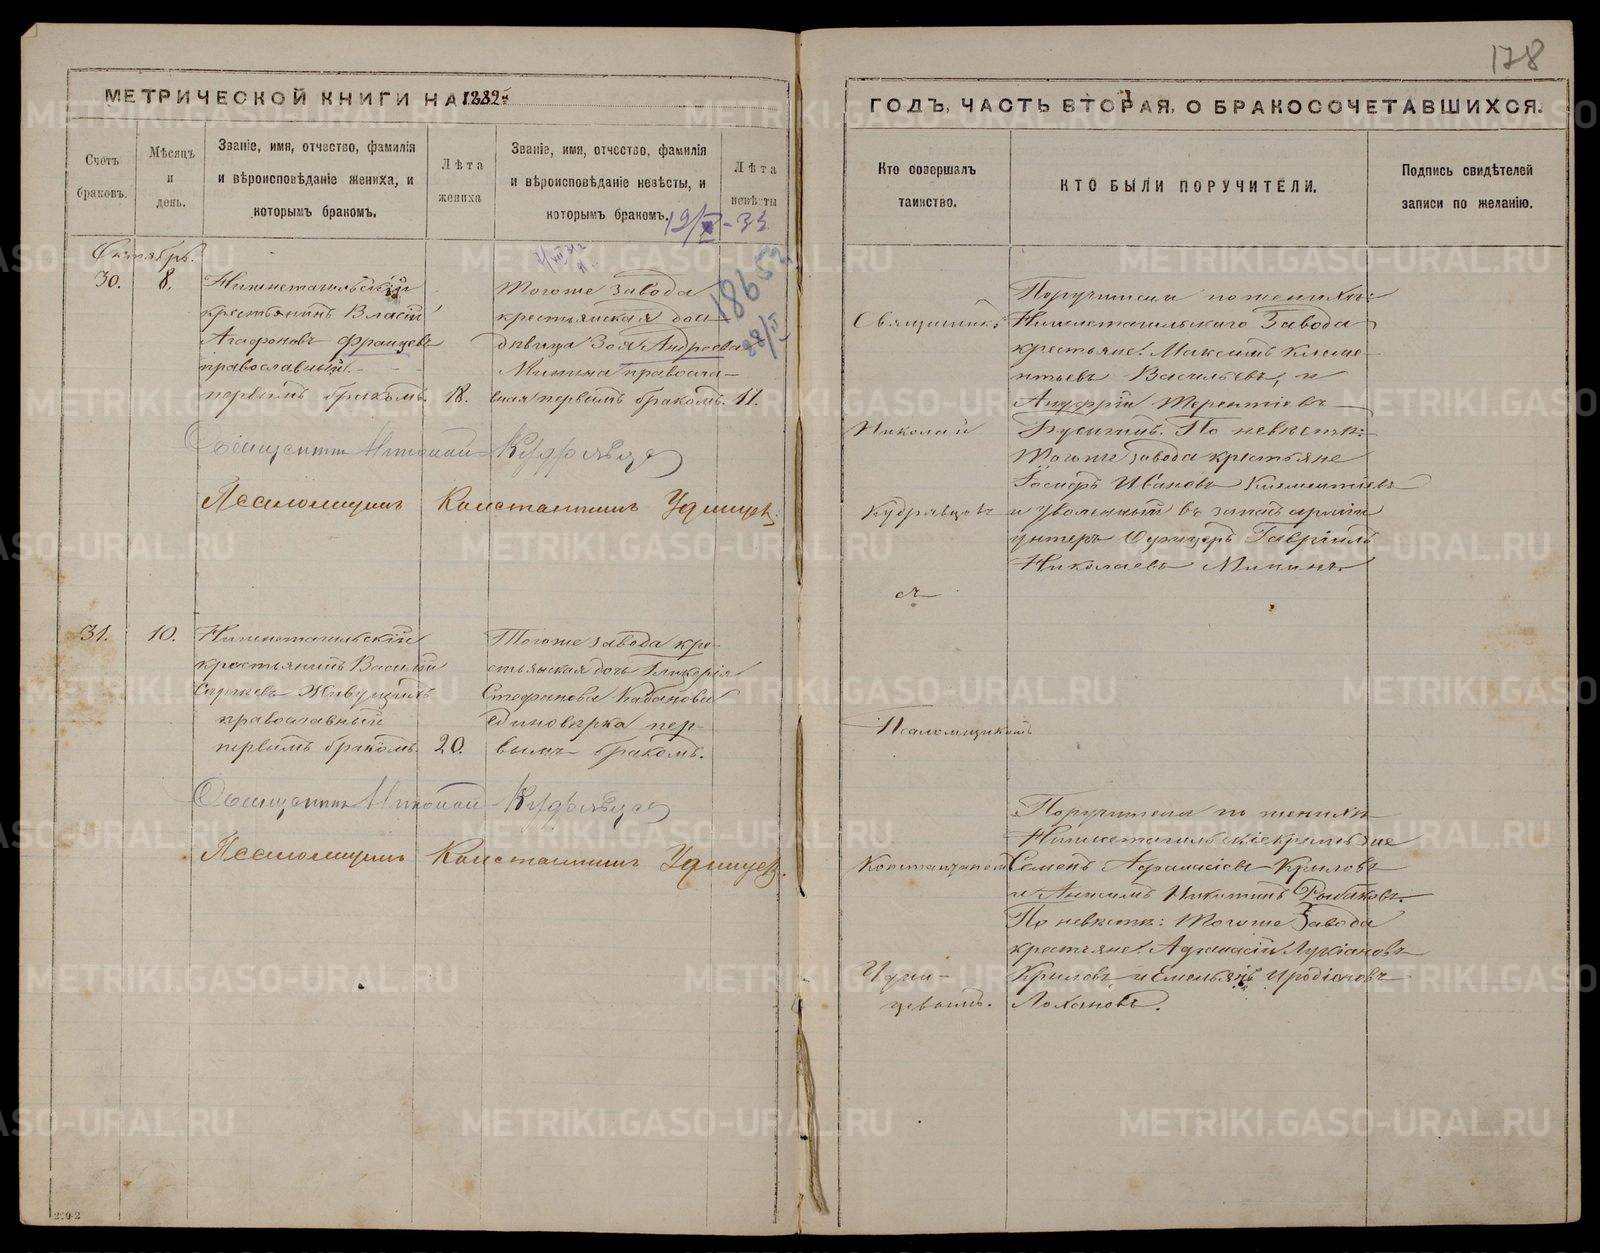 178
МЕТРИЧЕСКОЙ КНИГИ НА 1889й
Счетъ браковъ.
Мѣсяцъ и день.
Званіе, имя, отчество, фамилія и вѣроисповѣданіе жениха, и которымъ бракомъ.
Лѣта жениха
Званіе, имя, отчество, фамилія и вѣроисповѣданіе невѣсты, и которымъ бракомъ.
Лѣта невѣсты
Октябрь.
30.
8.
Нижнетагильскій
крестьянинъ Власій
Агафоновъ Францевъ
православный.
первымъ бракомъ.
18.
Тогоже завода
крестьянская дочь
дѣвица Зоя Андреева
Минина правосла-
вная первымъ бракомъ.
17.
18652
Священникъ Николай Кудрявцевъ
Псаломщикъ Константинъ Удинцев.
31.
10.
Нижнетагильскій
крестьянинъ Василій
Сергіевъ Живущихъ
православный
первымъ бракомъ.
20.
Тогоже завода кре-
стьянская дочь Гликерія
Стефанова Кабанова
единовѣрка пер-
вымъ бракомъ.
Священникъ Николай Кудрявцевъ
Псаломщикъ Константинъ Удинцев.
ГОДЪ, ЧАСТЬ ВТОРАЯ, О БРАКОСОЧЕТАВШИХСЯ.
Кто совершалъ таинство.
КТО БЫЛИ ПОРУЧИТЕЛИ.
Подпись свидѣтелей записи по желанію.
Священникъ
Николай
Кудрявцовъ
съ
Псаломщикомъ
Константиномъ
Удин-
цевымъ.
Поручители по женихѣ:
Нижнетагильскаго Завода
крестьяне: Максимъ Клеме-
нтьевъ Васильевъ, и
Ануфрій Терентіевъ
Бусыгинъ. По невѣстѣ:
Тогоже завода крестьяне
Іосифъ Ивановъ Климентіевъ
и уволенный въ запасъ арміи
унтеръ Офицеръ Гавріилъ
Николаевъ Мининъ.
Поручители по женихѣ
Нижнетагильскіе крестьяне
Семенъ Афанасіевъ Крыловъ
и Анисимъ Никитинъ Рыбаковъ.
По невѣстѣ: Тогоже Завода
крестьяне: Афанасій Лукіановъ
Крыловъ и Емельянъ Иродіоновъ
Лохановъ.
200-2
METRIKI.GASO-URAL.RU